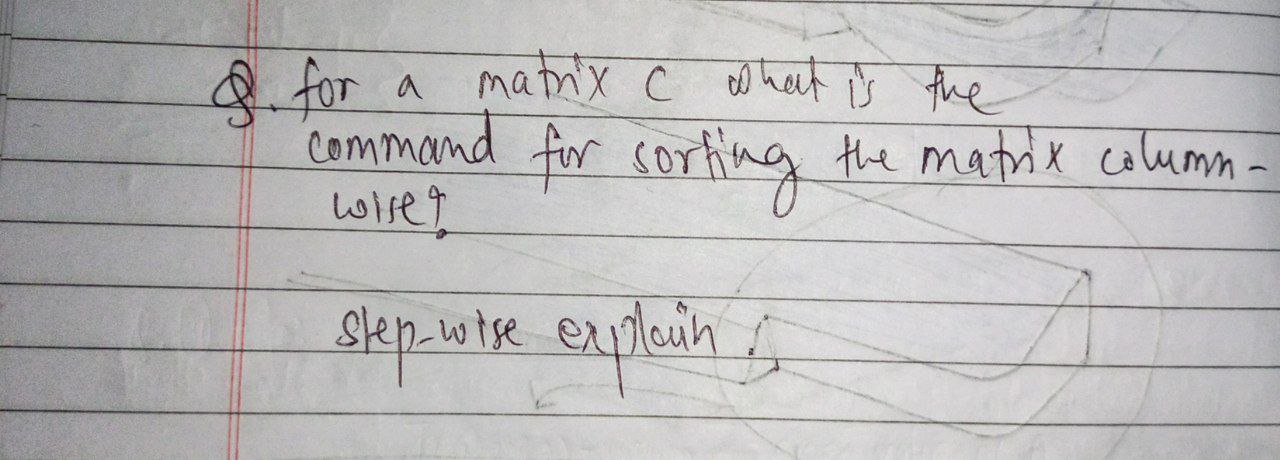 Q. for a matrix C what is the
command for sorting the matrix column-
wise?
step-wise explain.